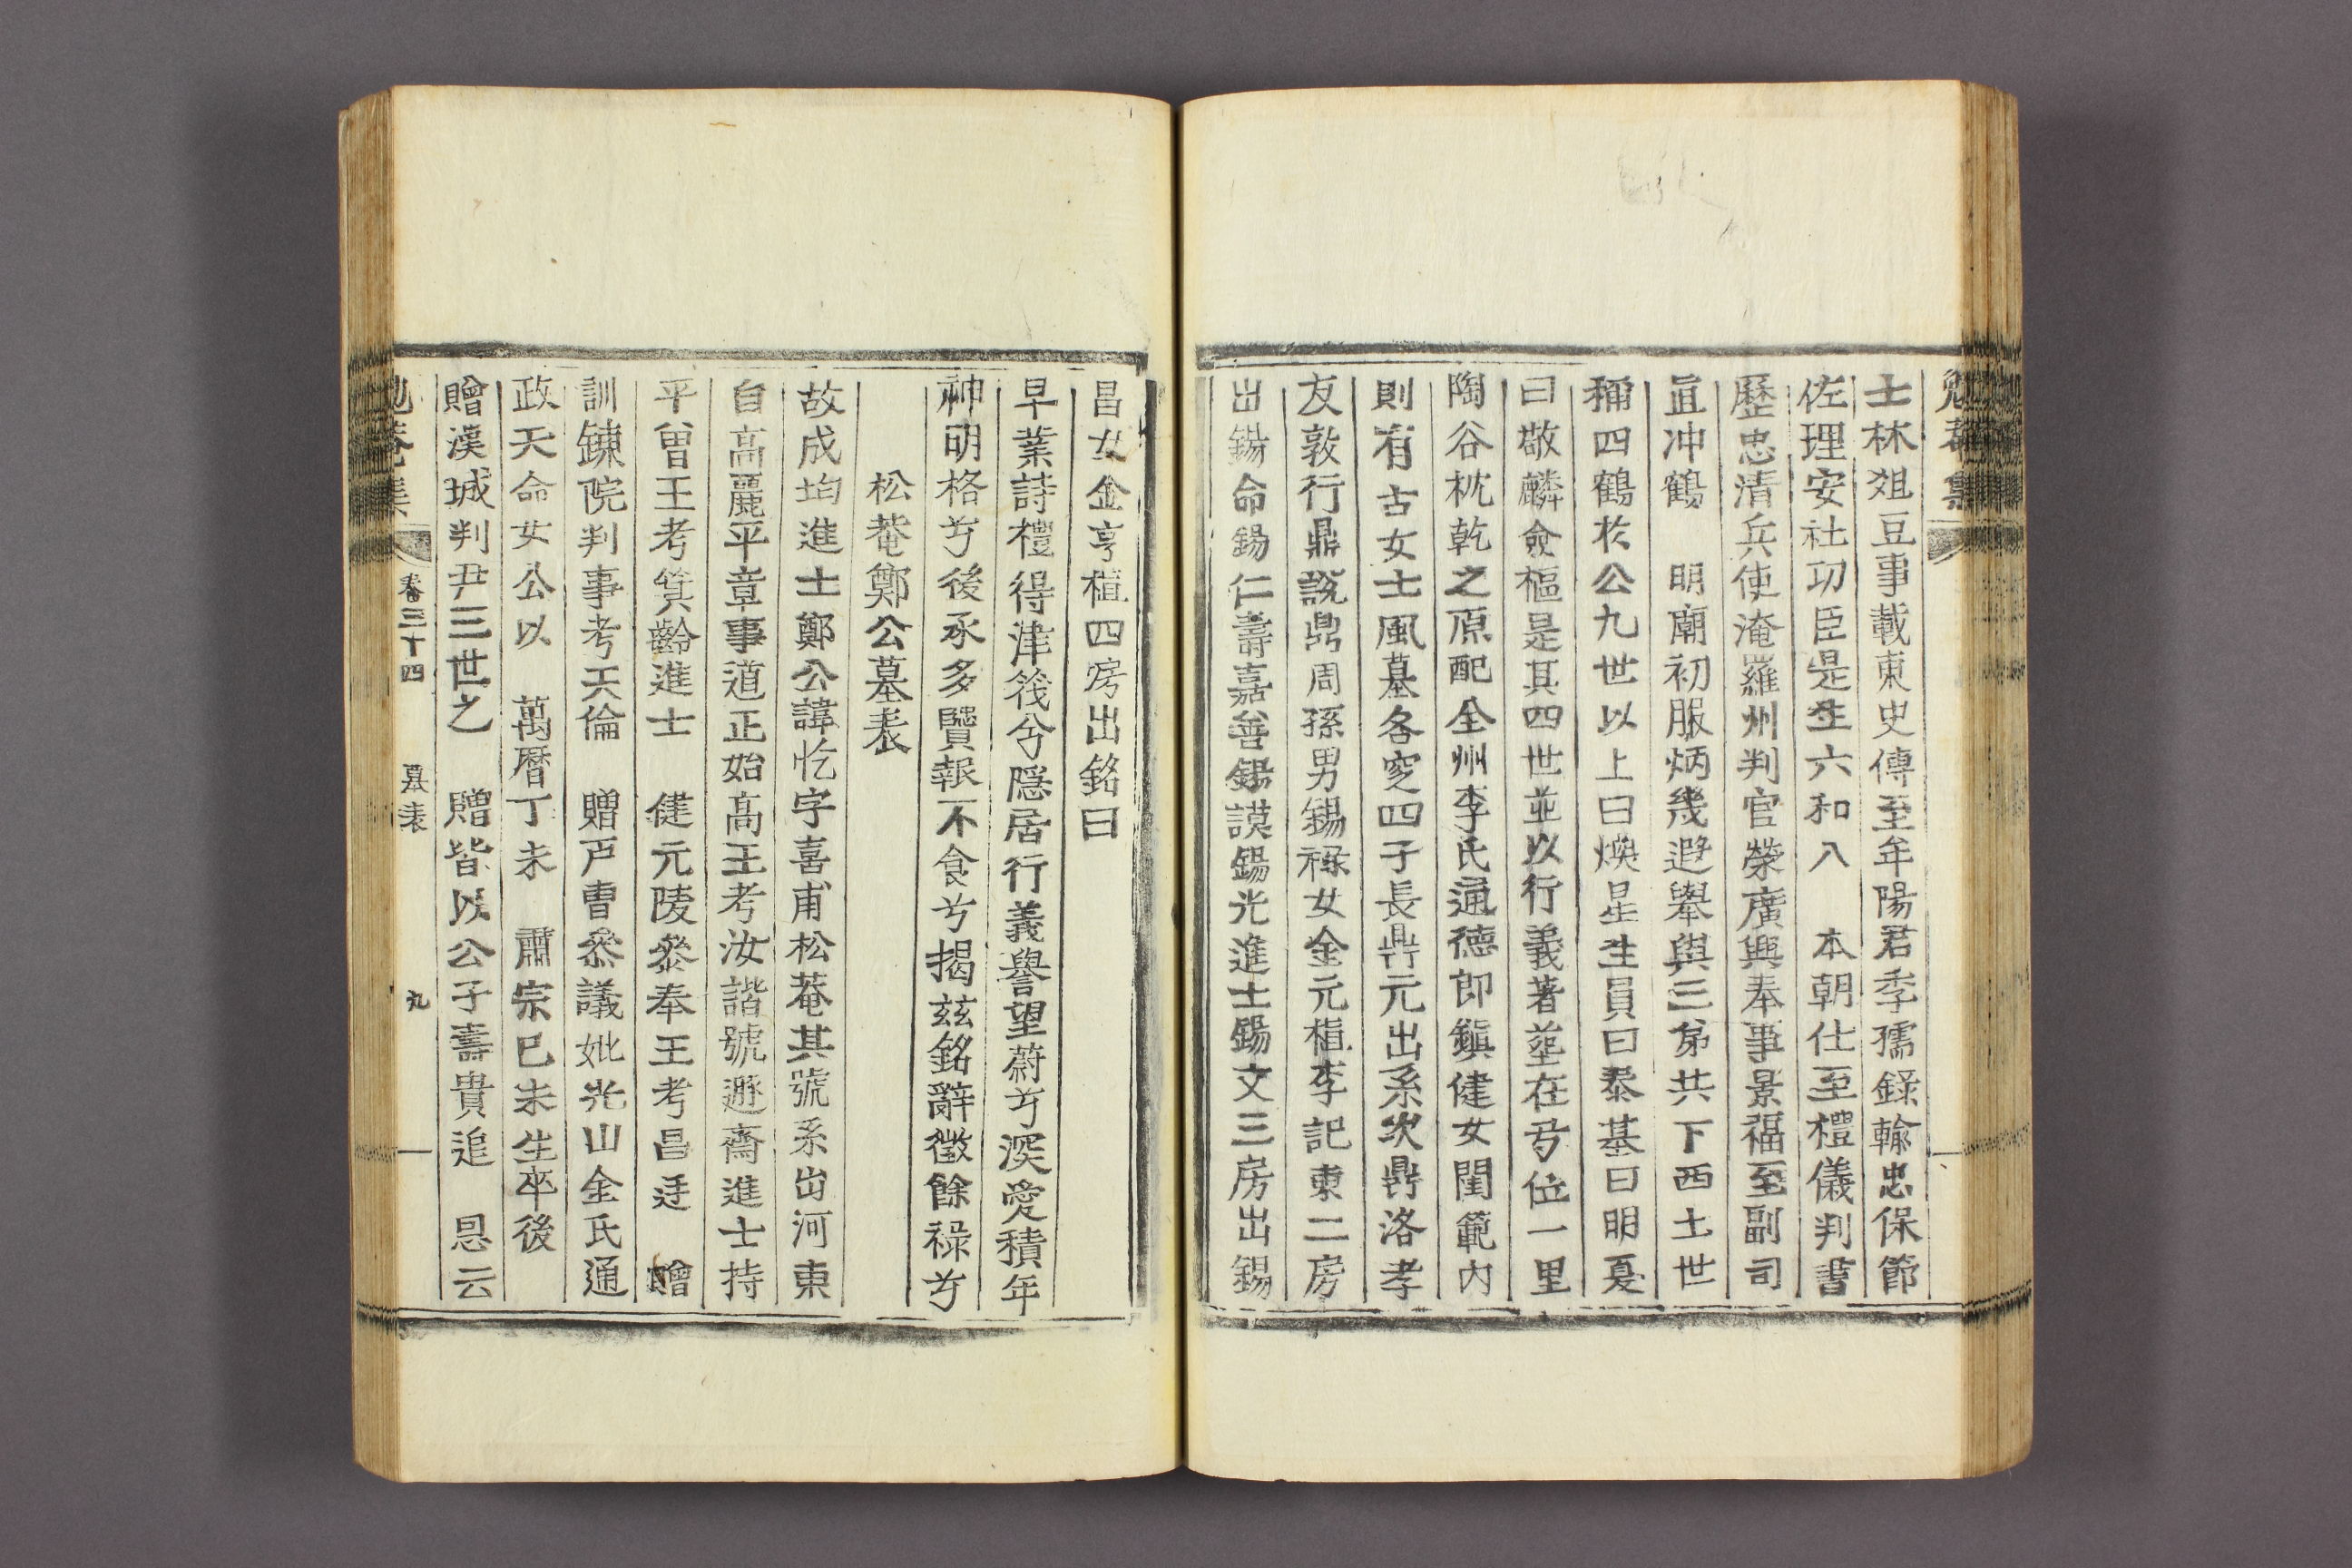 士林爼豆事載東史傳至牟陽君季孺錄輸忠保節
佐理安社功臣是生六和八 本朝仕至禮儀判書
歷忠清兵使淹羅州判官榮廣興奉事景福至副司
直冲鶴 明廟初服炳幾遐舉與三弟共下西土世
稱四鶴於公九世以上曰煥星生員曰泰基曰明夏
曰敬麟僉樞是其四世並以行義著塋在芎位一里
陶谷枕乾之原配全州李氏通德郎鎭健女閨範內
則有古女士風墓各窆四子長鼎元出系次鼎洛孝
友敦行鼎說鼎周孫男錫祿女金元植李記東二房
出錫命錫仁壽嘉善錫謨錫光進士錫文三房出錫
昌女金亨植四房出銘曰
早業詩禮得津筏兮隱居行義譽望蔚兮深愛積年
神明格兮後承多賢報不食兮揭茲銘辭徵餘祿兮
松菴鄭公墓表
故成均進士鄭公諱忔字喜甫松菴其號系出河東
自高麗平章事道正始高王考汝諧號遯齋進士持
平曾王考箕齡進士 健元陵參奉王考昌廷 贈
訓鍊院判事考天倫 贈戶曹參議妣光山金氏通
政天命女公以 萬曆丁未 肅宗己未生卒後
贈漢城判尹三世之 贈皆以公子壽貴追 恩云
勉菴集 卷三十四 墓表 九